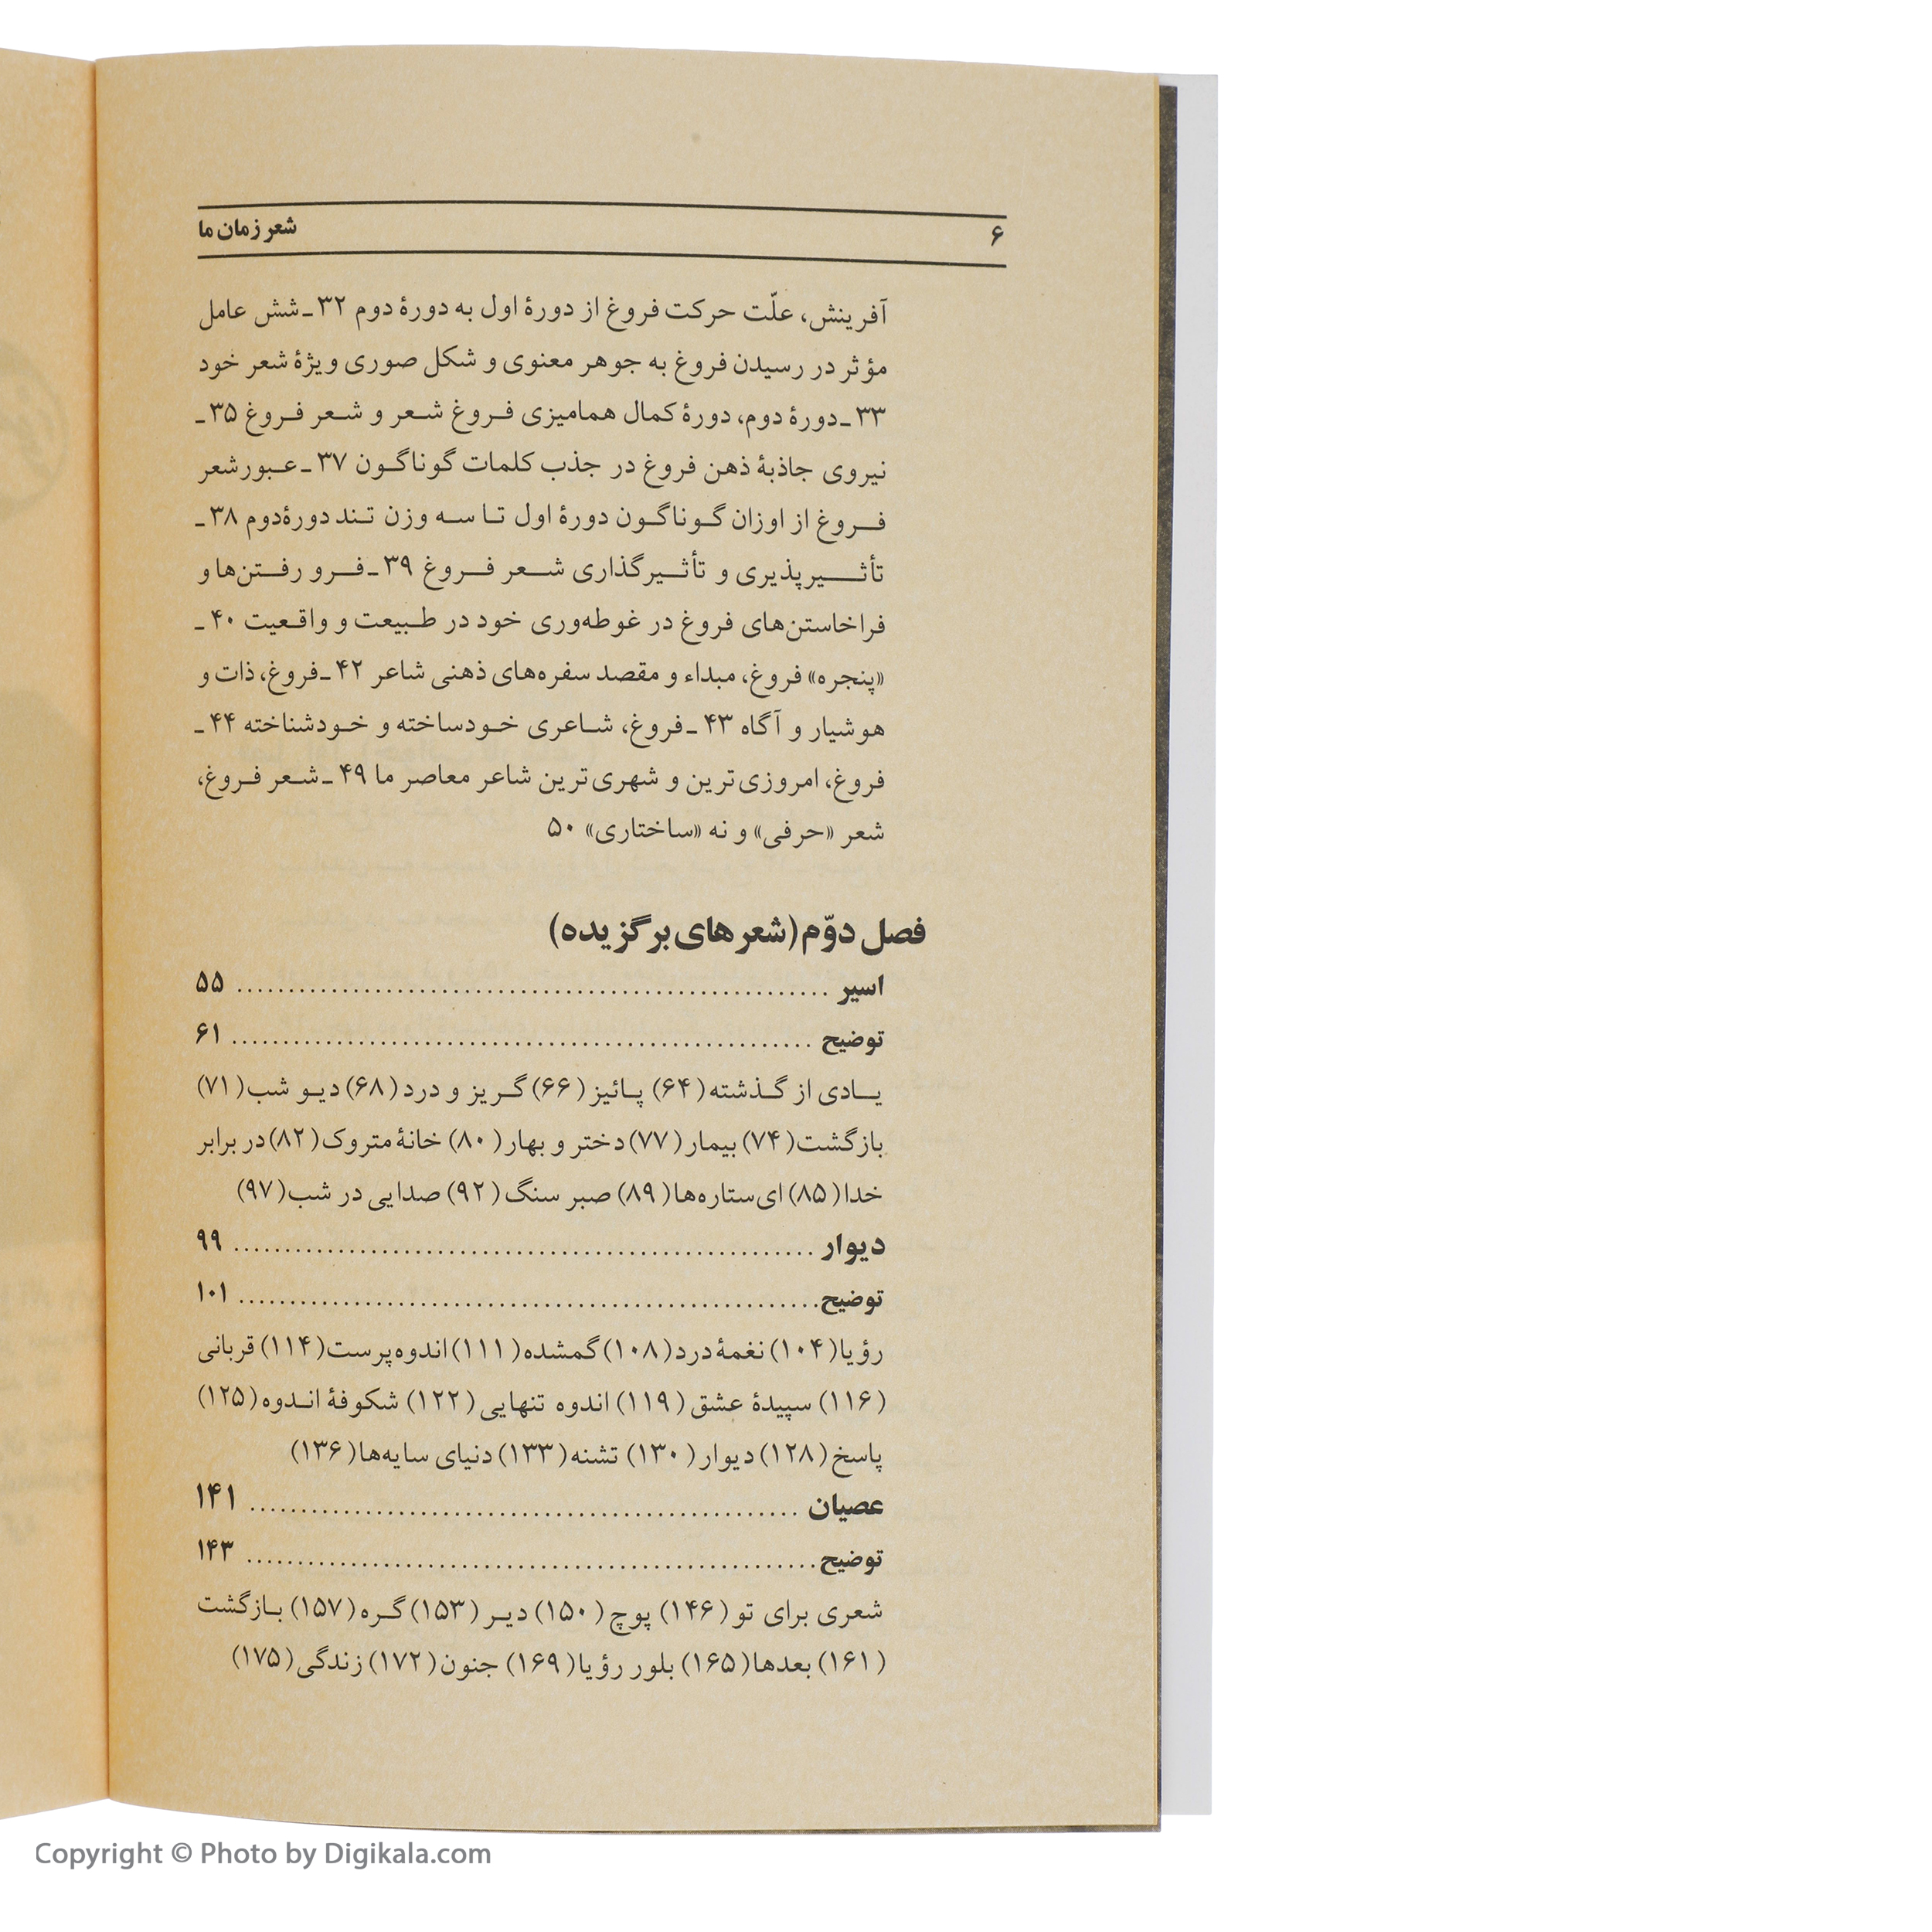 ۶ شعر زمان ما
آفرینش، علّت حرکت فروغ از دورهٔ اول به دورهٔ دوم ۳۲ ـ شش عامل
مؤثر در رسیدن فروغ به جوهر معنوی و شکل صوری ویژهٔ شعر خود
۳۳ ـ دورهٔ دوم، دورهٔ کمال همامیزی فروغ شعر و شعر فروغ ۳۵ ـ
نیروی جاذبهٔ ذهن فروغ در جذب کلمات گوناگون ۳۷ ـ عبور شعر
فروغ از اوزان گوناگون دورهٔ اول تا سه وزن تند دورهٔ دوم ۳۸ ـ
تأثیرپذیری و تأثیرگذاری شعر فروغ ۳۹ ـ فرو رفتن‌ها و
فراخاستن‌های فروغ در غوطه‌وری خود در طبیعت و واقعیت ۴۰ ـ
«پنجره» فروغ، مبداء و مقصد سفره‌های ذهنی شاعر ۴۲ ـ فروغ، ذات و
هوشیار و آگاه ۴۳ ـ فروغ، شاعری خودساخته و خودشناخته ۴۴ ـ
فروغ، امروزی‌ترین و شهری‌ترین شاعر معاصر ما ۴۹ ـ شعر فروغ،
شعر «حرفی» و نه «ساختاری» ۵۰
فصل دوّم (شعرهای برگزیده)
اسیر ........................................................ ۵۵
توضیح ........................................................ ۶۱
یادی از گذشته (۶۴) پائیز (۶۶) گریز و درد (۶۸) دیو شب (۷۱)
بازگشت (۷۴) بیمار (۷۷) دختر و بهار (۸۰) خانهٔ متروک (۸۲) در برابر
خدا (۸۵) ای ستاره‌ها (۸۹) صبر سنگ (۹۲) صدایی در شب (۹۷)
دیوار ........................................................ ۹۹
توضیح ........................................................ ۱۰۱
رؤیا (۱۰۴) نغمهٔ درد (۱۰۸) گمشده (۱۱۱) اندوه‌پرست (۱۱۴) قربانی
(۱۱۶) سپیدهٔ عشق (۱۱۹) اندوه تنهایی (۱۲۲) شکوفهٔ اندوه (۱۲۵)
پاسخ (۱۲۸) دیوار (۱۳۰) تشنه (۱۳۳) دنیای سایه‌ها (۱۳۶)
عصیان ........................................................ ۱۴۱
توضیح ........................................................ ۱۴۳
شعری برای تو (۱۴۶) پوچ (۱۵۰) دیر (۱۵۳) گره (۱۵۷) بازگشت
(۱۶۱) بعدها (۱۶۵) بلور رؤیا (۱۶۹) جنون (۱۷۲) زندگی (۱۷۵)
Copyright © Photo by Digikala.com